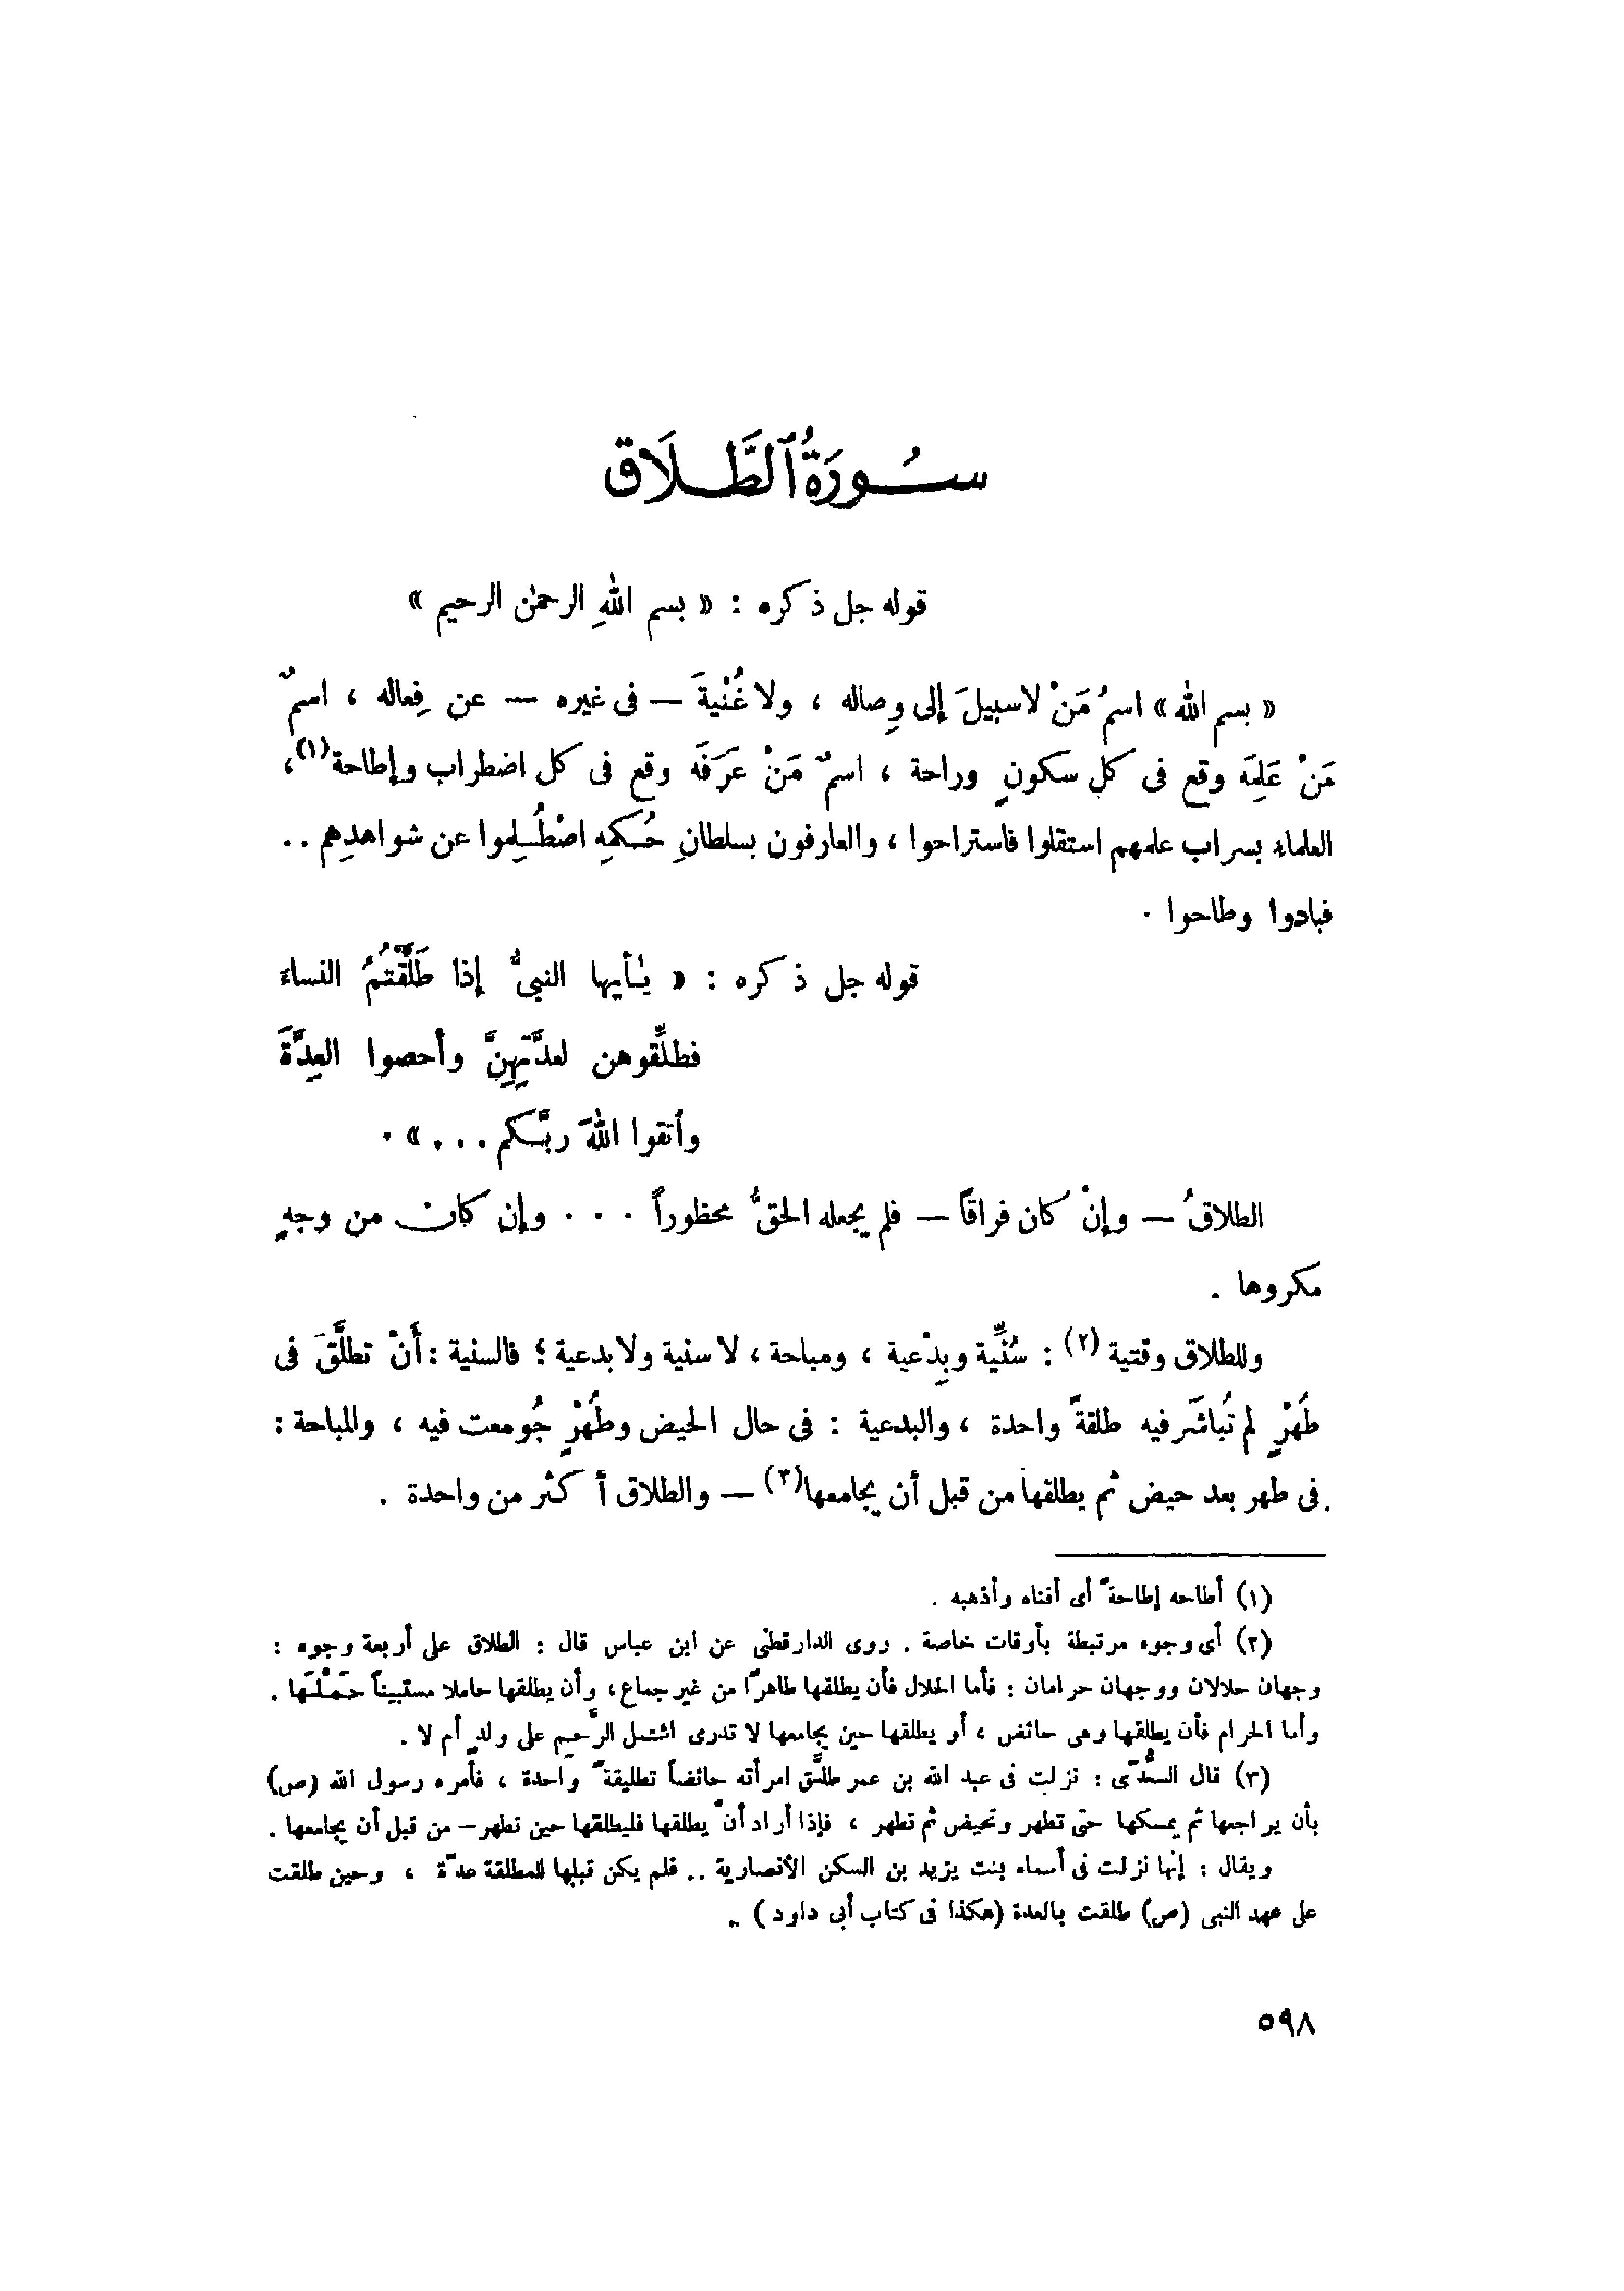 سُورَةُ ٱلطَّلَاق
قوله جل ذكره : « بسم اللهِ الرحمٰن الرحيم »
« بسم الله » اسمُ مَنْ لا سبيلَ إلى وِصاله ، ولا غُنْيةَ — فى غيره — عن فِعاله ، اسمٌ
مَنْ عَلِمَه وقع فى كل سكونٍ وراحة ، اسمٌ مَنْ عَرَفَه وقع فى كل اضطراب وإطاحة (١)،
العلماء بسراب علمهم استقلوا فاستراحوا ، والعارفون بسلطانِ حُكمِه اصْطُلِموا عن شواهدِهم ..
فبادوا وطاحوا .
قوله جل ذكره : « يٰأيها النبىُّ إذا طَلَّقْتُمُ النساءَ
فطلِّقوهن لعدَّتِهِنَّ وأحصوا العِدَّةَ
وأتقوا اللهَ ربَّكم . . . » .
الطلاقُ — وإنْ كان فراقاً — فلم يجعله الحقُّ محظوراً . . . وإن كان من وجهٍ
مكروها .
وللطلاق وقتية (٢) : سُنِّية وبِدْعية ، ومباحة ، لا سنية ولا بدعية ؛ فالسنية : أَنْ تطلَّقَ فى
طُهْرٍ لم تُباشَر فيه طلقةً واحدة ، والبدعية : فى حال الحيض وطُهْرٍ جُومعت فيه ، والمباحة :
فى طهر بعد حيض ثم يطلقها من قبل أن يجامعها (٣) — والطلاق أكثر من واحدة .
(١) أطاحه إطاحةً أى أفناه وأذهبه .
(٢) أى وجوه مرتبطة بأوقات خاصة . روى الدارقطنى عن ابن عباس قال : الطلاق على أربعة وجوه :
وجهان حلالان ووجهان حرامان : فأما الحلال فأن يطلقها طاهرًا من غير جماع ، وأن يطلقها حاملا مستبيناً حَمْلَها .
وأما الحرام فأن يطلقها وهى حائض ، أو يطلقها حين يجامعها لا تدرى اشتمل الرَّحِم على ولدٍ أم لا .
(٣) قال السُّدّى : نزلت فى عبد الله بن عمر طلَّق امرأته حائضاً تطليقةً واحدة ، فأمره رسول الله (ص)
بأن يراجعها ثم يمسكها حتى تطهر وتحيض ثم تطهر ، فإذا أراد أنْ يطلقها فليطلقها حين تطهر – من قبل أن يجامعها .
ويقال : إنها نزلت فى أسماء بنت يزيد بن السكن الأنصارية .. فلم يكن قبلها للمطلقة عدّة ، وحين طلقت
على عهد النبى (ص) طلقت بالعدة (هكذا فى كتاب أبى داود ) ..
٥٩٨